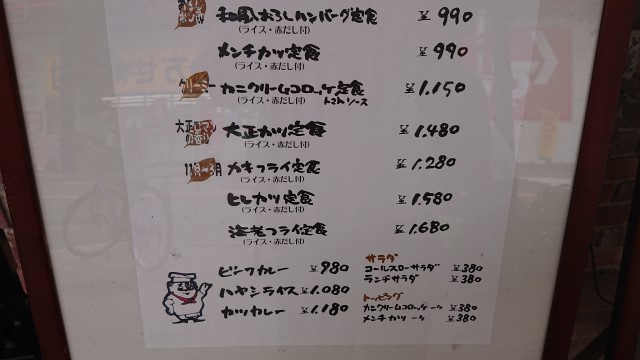 和風おろしハンバーグ定食 ¥990
(ライス・赤だし付)
メンチカツ定食 ¥990
(ライス・赤だし付)
クリーミー カニクリームコロッケ定食 ¥1.150
(ライス・赤だし付) トマトソース
大正ロマンの香り 大正カツ定食 ¥1.480
(ライス・赤だし付)
11月〜3月 カキフライ定食 ¥1.280
(ライス・赤だし付)
ヒレカツ定食 ¥1.580
(ライス・赤だし付)
海老フライ定食 ¥1.680
(ライス・赤だし付)
ビーフカレー ¥980
ハヤシライス ¥1.080
カツカレー ¥1.180
サラダ
コールスローサラダ ¥380
ランチサラダ ¥380
トッピング
カニクリームコロッケ 一ケ ¥380
メンチカツ 一ケ ¥380